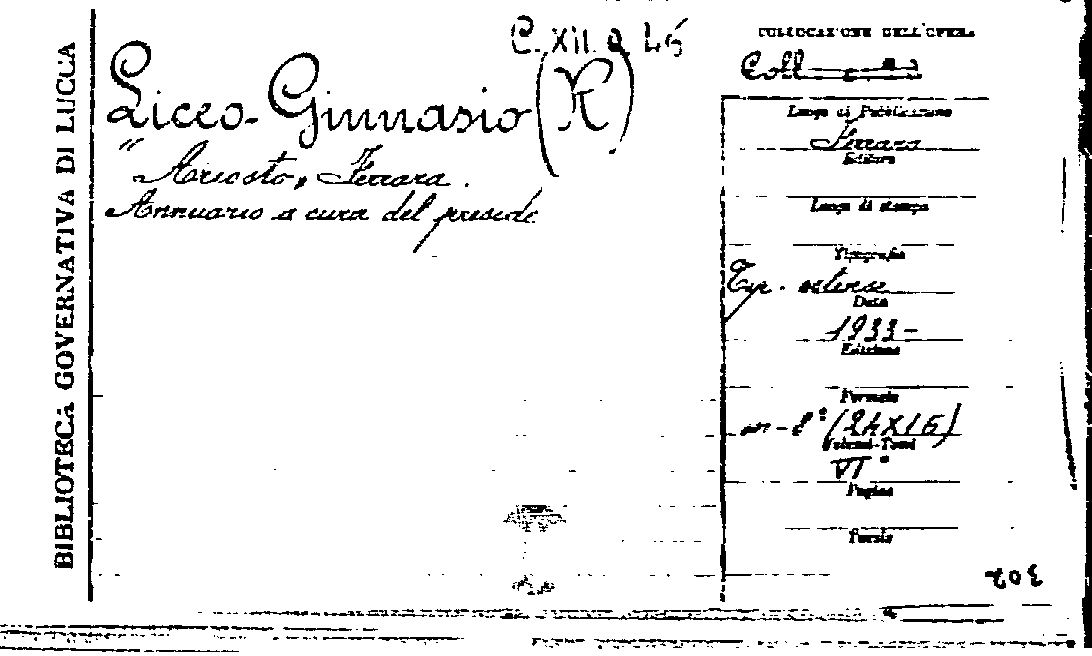 BIBLIOTECA GOVERNATIVA DI LUCCA
C. XII. Q 46
Liceo-Ginnasio (R)
"Ariosto" Ferrara.
Annuario a cura del preside
COLLOCAZIONE DELL'OPERA
Coll
Luogo di Pubblicazione
Ferrara
Editore
Luogo di stampa
Tipografia
Tip. estense
Data
1933-
Edizione
Formato
in-8° (24X16)
Volumi-Tomi
VI°
Pagine
302